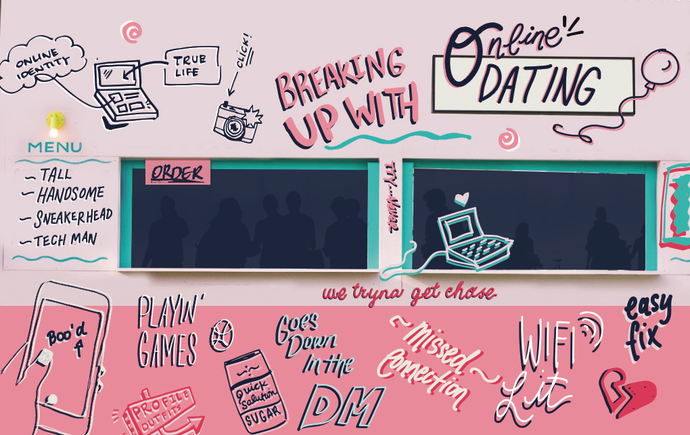 ONLINE
IDENTITY
TRUE
LIFE
CLICK!!
BREAKING
UP WITH
Online
DATING
MENU
~ TALL
~ HANDSOME
~ SNEAKERHEAD
~ TECH MAN
ORDER
we tryna get chose
Boo'd
PLAYIN'
GAMES
PROFILE
OUTFITS
Quick
Solution
SUGAR
Goes
Down
In the
DM
~ Missed ~
Connection
WIFI
Lit
easy
fix